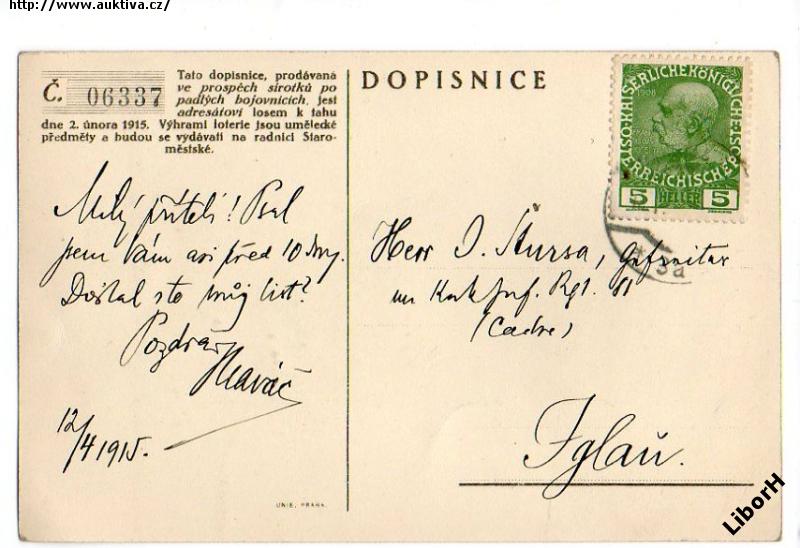 http://www.auktiva.cz/
Č. 06337
Tato dopisnice, prodávaná
ve prospěch sirotků po
padlých bojovnících, jest
adresátovi losem k tahu
dne 2. února 1915. Výhrami loterie jsou umělecké
předměty a budou se vydávati na radnici Staro-
městské.
Milý příteli! Psal
jsem Vám asi před 10 dny.
Dostal jste můj list?
Pozdrav
Hlaváč
12/4 1915.
UNIE, PRAHA.
DOPISNICE
KAISERLICHE KÖNIGLICHE ÖSTERREICHISCHE POST
1908
5 HELLER 5
3a
Herr J. Štursa, Gefreiter
Inf. Rgt. 81
(Cadre)
Iglau.
LiborH